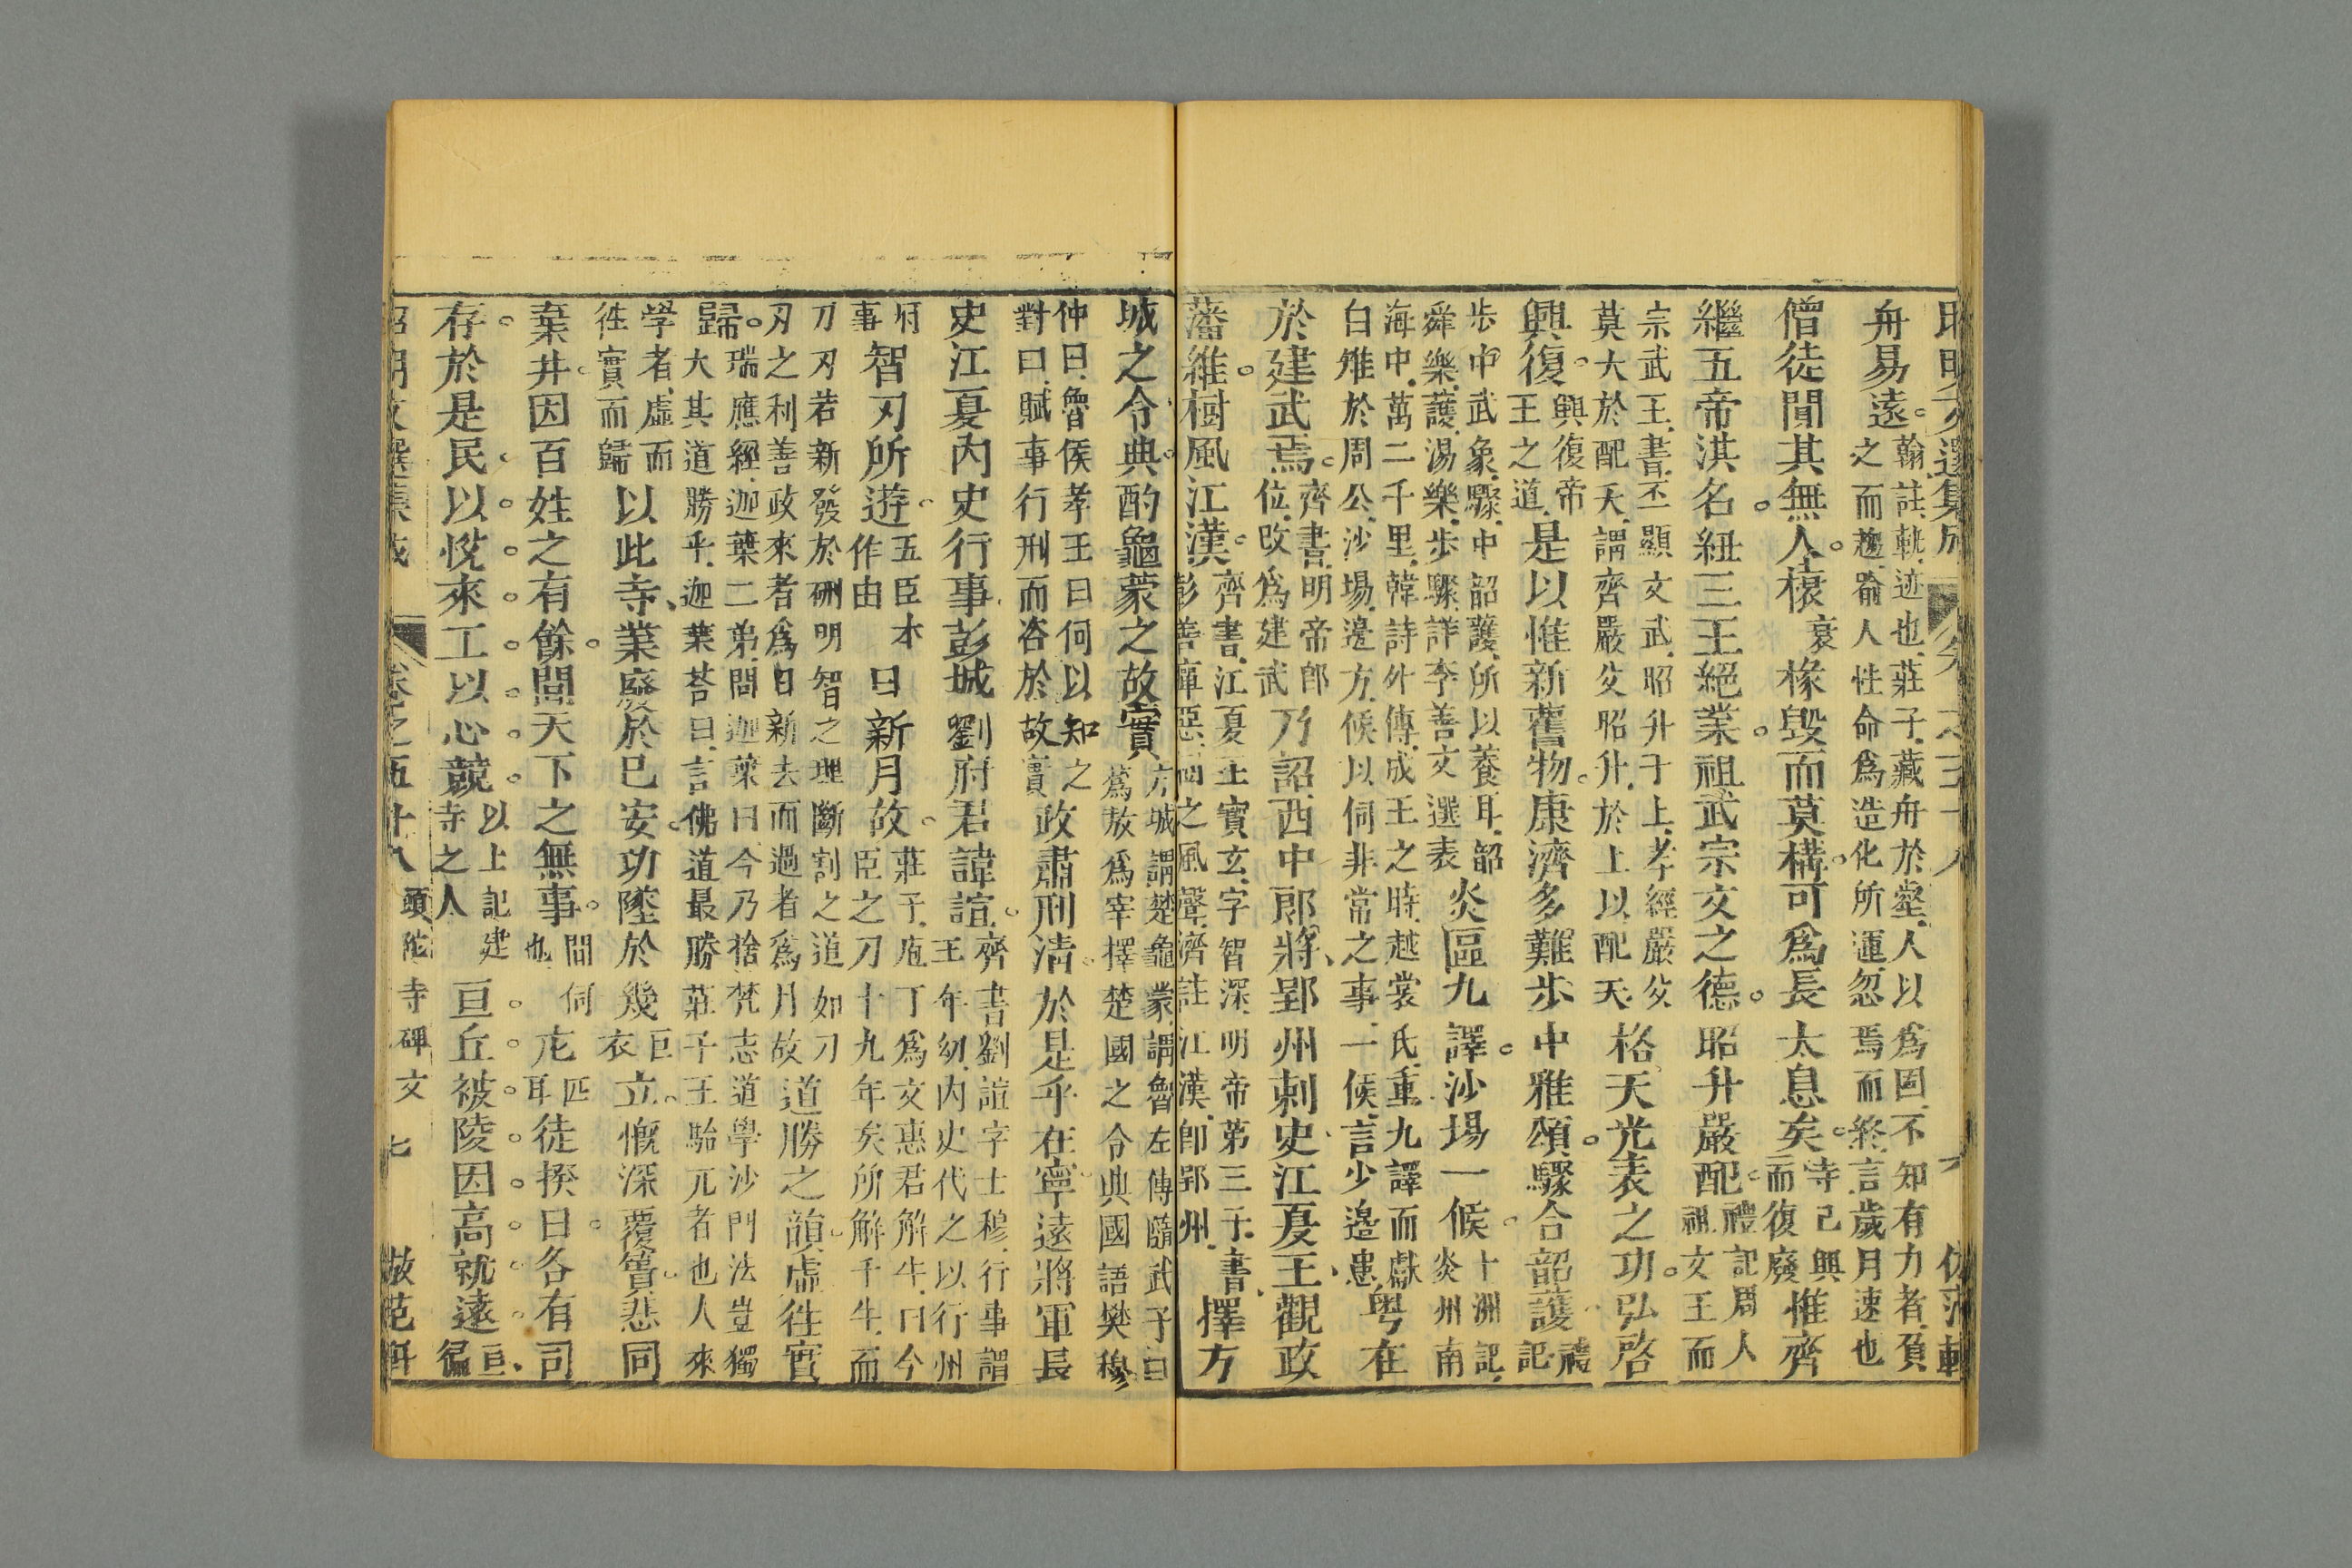 昭明文選集成 卷之五十八 六 倣范軒
舟易遠。翰註軌迹也莊子藏舟於壑人以爲固不知有力者負
之而趨喻人性命爲造化所運忽焉而終言歲月速也
僧徒閴其無人。榱衰椽毀而莫構。可爲長太息矣。寺已興而復廢惟齊
繼五帝洪名。紐三王絕業。祖武宗文之德。昭升嚴配。禮記周人祖文王而
宗武王書丕顯文武昭升于上孝經嚴父
莫大於配天謂齊嚴父昭升於上以配天格天光表之功。弘啓
興復。興復帝王之道是以惟新舊物。康濟多難步中雅頌。驟合韶護。禮記
步中武象驟中韶護所以養耳韶
舜樂護湯樂步驟詳李善文選表炎區九譯。沙場一候。十洲記炎州南
海中萬二千里韓詩外傳成王之時越裳氏重九譯而獻
白雉於周公沙場邊方候以伺非常之事一候言少邊患粤在
於建武焉。齊書明帝卽位改爲建武乃詔西中郎將郢州刺史江夏王觀政
藩維。樹風江漢。齊書江夏王寶玄字智深明帝第三子書
彰善癉惡樹之風聲濟註江漢卽郢州擇方
城之令典。酌龜蒙之故實方城謂楚龜蒙謂魯左傳隨武子曰
蔿敖爲宰擇楚國之令典國語樊穆
仲曰魯侯孝王曰何以知之
對曰賦事行刑而咨於故實政肅刑清。於是乎在寧遠將軍長
史江夏內史行事彭城劉府君諱諠。齊書劉諠字士穆行事謂
王年幼內史代之以行州
府事智刃所遊。五臣本作由日新月故。莊子庖丁爲文惠君解牛曰今
臣之刀十九年矣所解千牛而
刀刃若新發於硎明智之理斷割之道如刀
刃之利善政來者爲日新去而過者爲月故道勝之韻。虛徃實
歸。瑞應經迦葉二弟問迦葉曰今乃捨梵志道學沙門法豈獨
大其道勝乎迦葉荅曰言佛道最勝莊子王駘兀者也人來
學者虛而徃實而歸以此寺業廢於已安。功墜於幾巨衣立。慨深覆簣。悲同
棄井。因百姓之有餘。閒天下之無事。間伺也庀匹耳徒揆日。各有司
存。於是民以悅來。工以心競。以上記建寺之人亘丘被陵。因高就遠。亘徧
昭明文選集成 卷之五十八 頭陀寺碑文 七 倣范軒